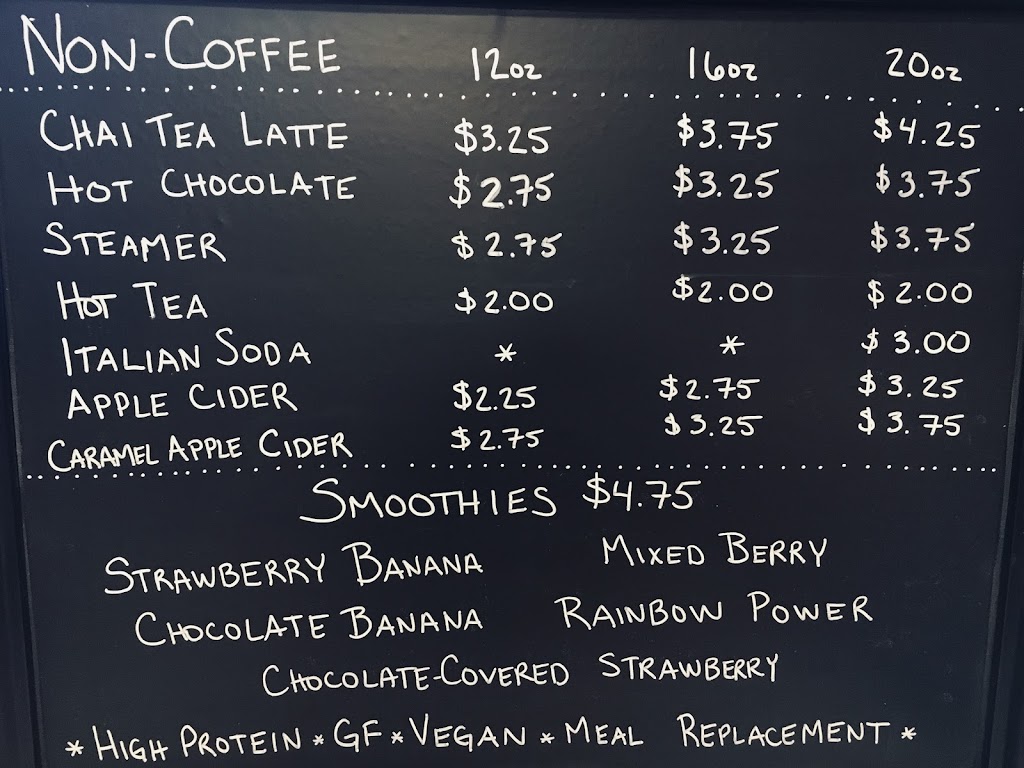 NON-COFFEE 12oz 16oz 20oz
CHAI TEA LATTE $3.25 $3.75 $4.25
HOT CHOCOLATE $2.75 $3.25 $3.75
STEAMER $2.75 $3.25 $3.75
HOT TEA $2.00 $2.00 $2.00
ITALIAN SODA * * $3.00
APPLE CIDER $2.25 $2.75 $3.25
CARAMEL APPLE CIDER $2.75 $3.25 $3.75
SMOOTHIES $4.75
STRAWBERRY BANANA MIXED BERRY
CHOCOLATE BANANA RAINBOW POWER
CHOCOLATE-COVERED STRAWBERRY
* HIGH PROTEIN * GF * VEGAN * MEAL REPLACEMENT *